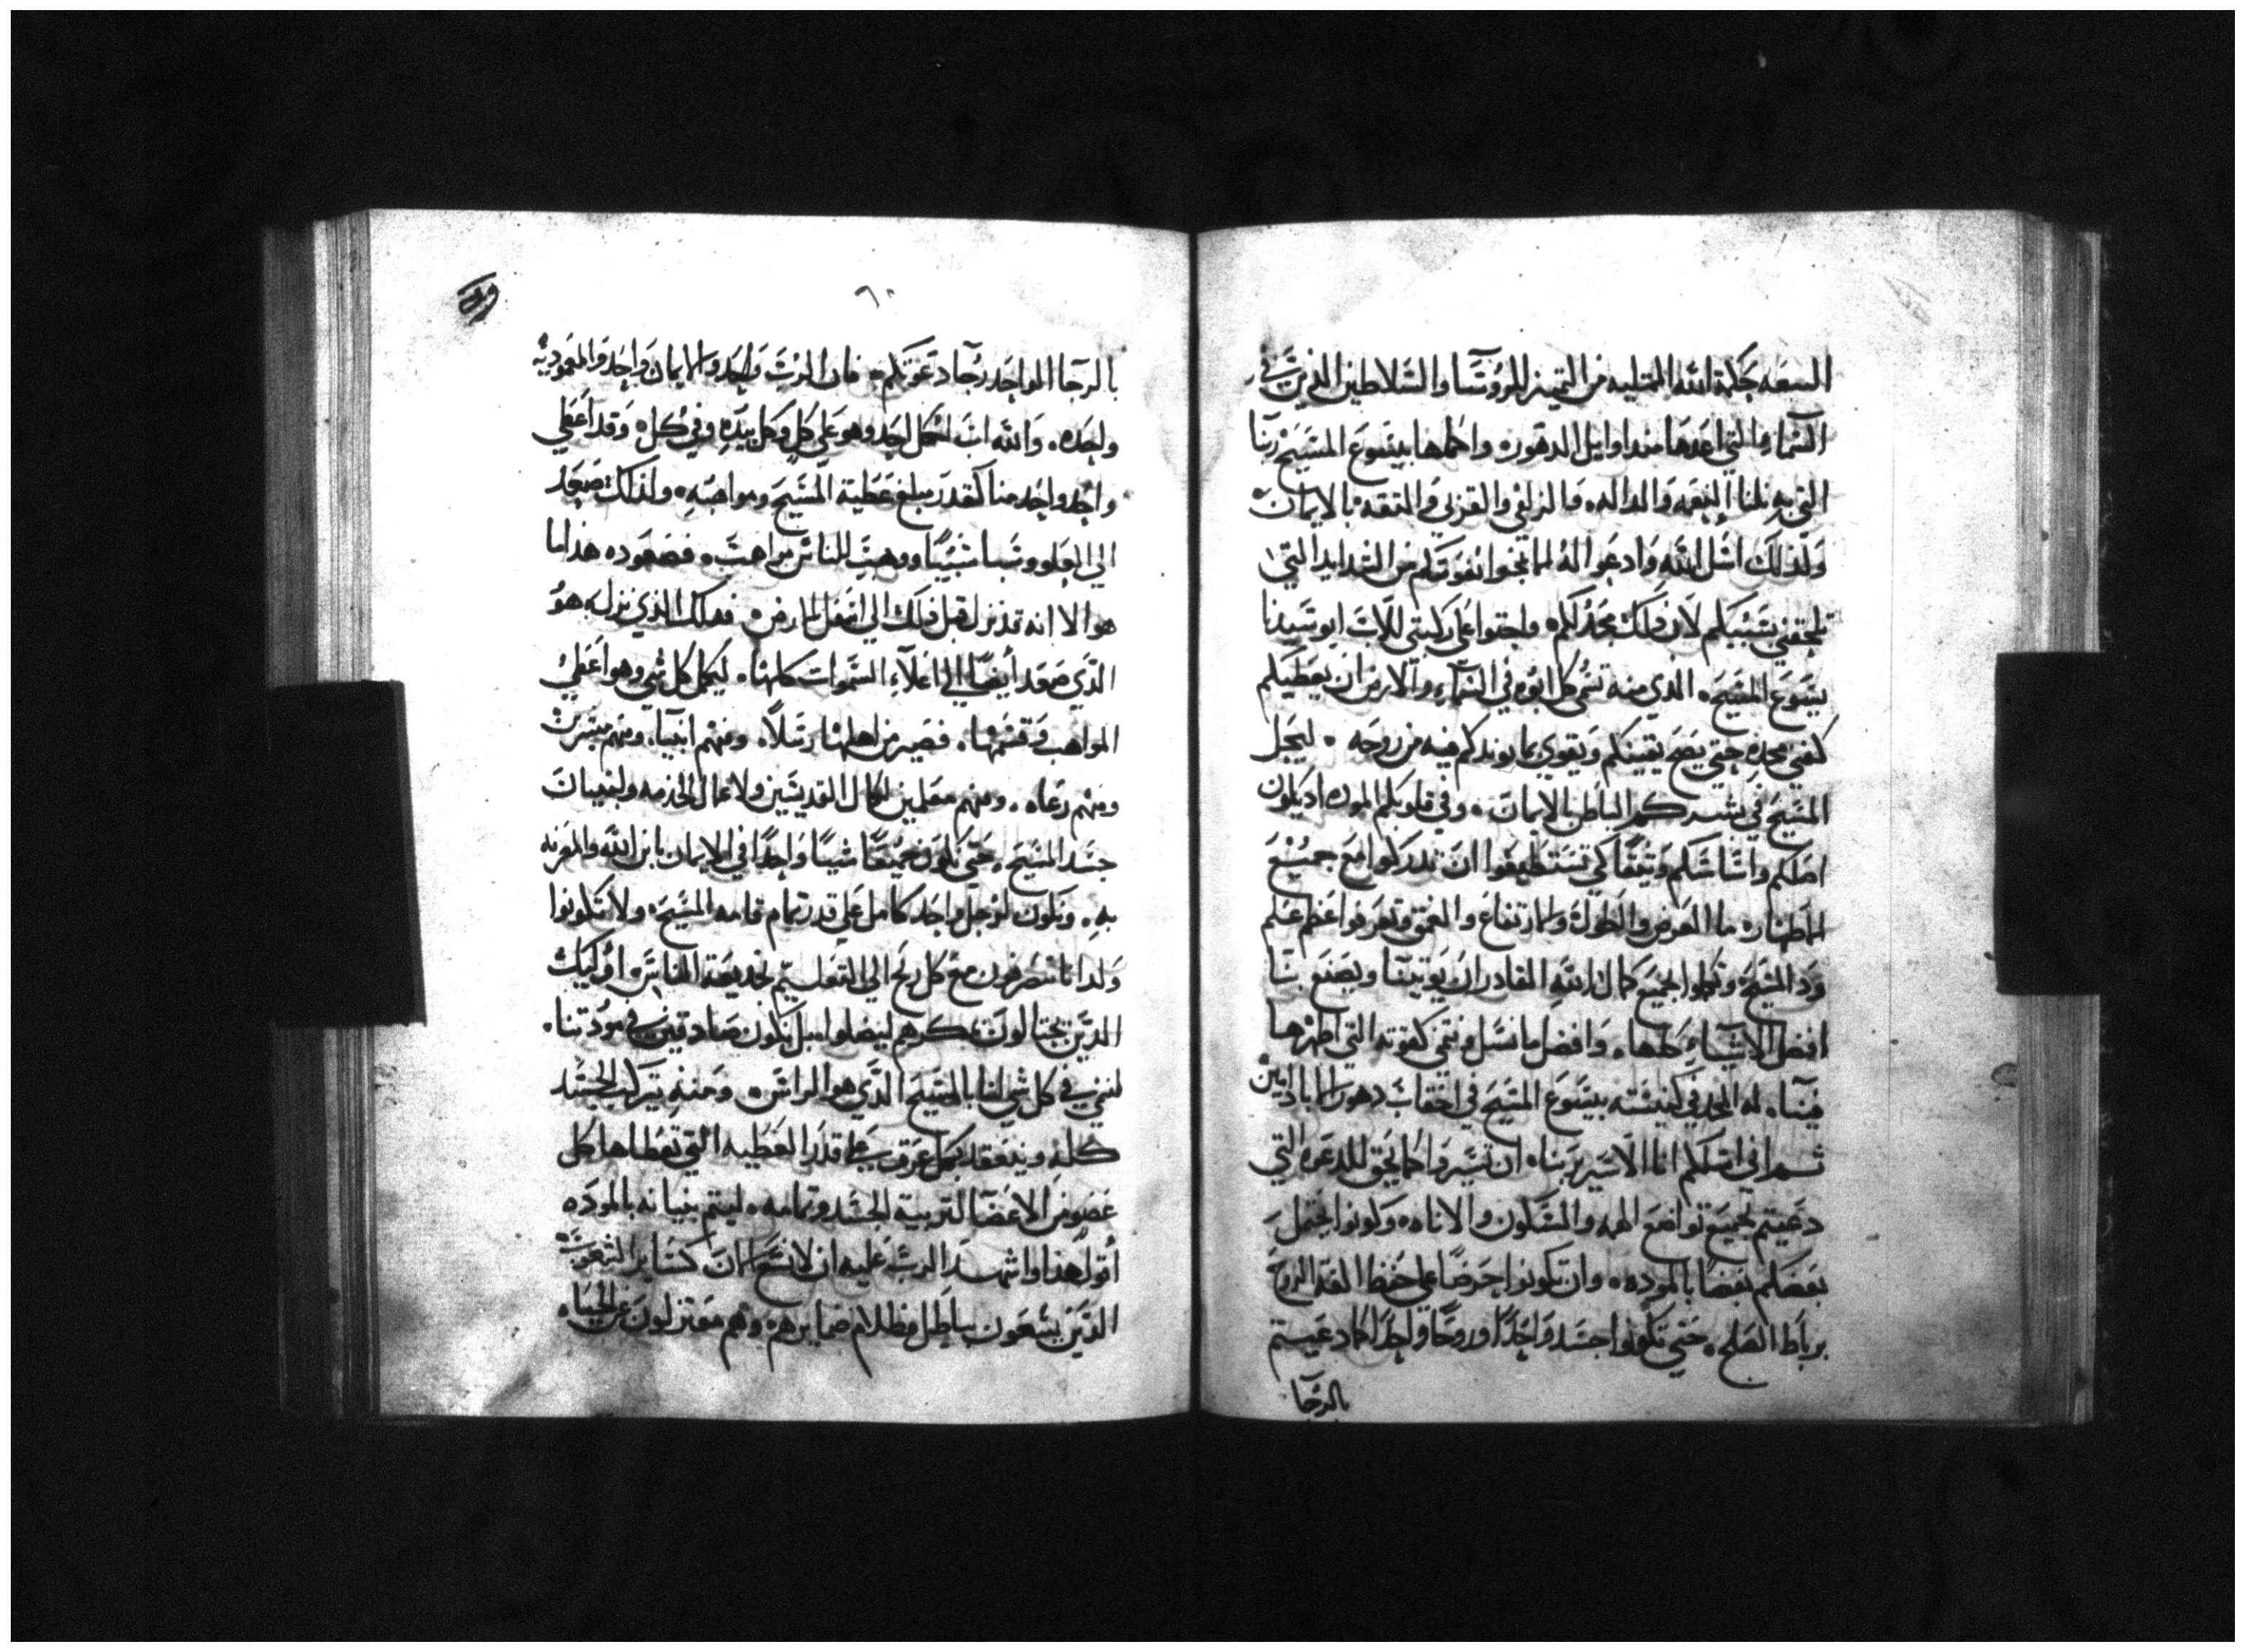 البيعه حكمة الله الممتليه من التمييز للروسا والسلاطين الذين في
السما التي اعدها منذ اوايل الدهور واكملها بيسوع المسيح ربنا
التي به نلنا النعمه والداله والزلفي والقربي والثقه بالايمان
ولذلك اسل الله وادعوا له لما تخوا نفوسكم من الشدايد التي
تلحقني بسببكم لان ذلك مجد لكم واحتوا علي ركبتي للاب ابو سيدنا
يسوع المسيح الذي منه تسمي كل ابوه في السماء والارض ان يعطيكم
كغني مجده حتي يصح يقينكم ويقوي بما يويدكم فيه من روحه ليحل
المسيح في بشركم الباطن بالايمان وفي قلوبكم الموده اذ يكون
اصلكم واساسكم وثيقا كي تستطيعوا ان تدركوا مع جميع
الاطهار ما العرض والطول والارتفاع والعمق وتعرفوا عظم علم
ود المسيح وتكملوا بجميع كمال الله القادر ان يوتينا ويصنع بنا
افضل الاشياء كلها وافضل ما نسل ونتمني كقوته التي اظهرها
فينا له المجد في كنيسته بيسوع المسيح في احقاب دهور الاباد امين
ثم اني اسلكم انا الاسير بربنا ان تسيروا كما يحق للدعوه التي
دعيتم بجميع تواضع الهمه والسكون والاناه وكونوا يحتمل
بعضكم بعضا بالموده وان تكونوا حرصا علي حفظ الفة الروح
برباط الصلح حتي تكونوا جسدا واحدا وروحا واحدا كما دعيتم
بالرجا
٦٠
بالرجا الواحد رجا دعوتكم فان الرب واحد والايمان واحد والمعموديه
واحده والله اب الكل واحد وهو علي كل وكل بيده وفي كل وقد اعطي
واحد واحد منا كقدر مبلغ عطية المسيح ومواهبه ولذلك صعد
الي العلو وسبا سبيا ووهب للناس مواهب فصعوده هذا ما
هو الا انه قد نزل قبل ذلك الي اسفل الارض فذلك الذي نزل هو
الذي صعد ايضا الي اعلاء السموات كلها ليكمل كل شي وهو اعطي
المواهب وقسمها فصير من اهلها رسلا ومنهم انبيا ومنهم مبشرين
ومنهم رعاه ومنهم معلمين لكمال القديسين ولاعمال الخدمه ولبنيان
جسد المسيح حتي نكون جميعا شيا واحدا في الايمان بابن الله والمعرفه
به ونكون لرجل واحد كامل علي قدر تمام قامه المسيح ولا تكونوا
ولدانا تنصرفون مع كل ريح الي التعليم بخديعة الناس اوليك
الذين يحتالون بمكرهم ليضلوا بل نكون صادقين في مودتنا
لننمي في كل شي لنا بالمسيح الذي هو الراس ومنه يتركب الجسد
كله وينعقد بكل عرق علي قدر العطيه التي تعطاها كل
عضو من الاعضا لتربية الجسد وتمامه ليتم بنيانه بالموده
اقول هذا واشهد الرب عليه ان لا تسعوا الان كساير الشعوب
الذين يسعون بباطل وظلام ضمايرهم وهم معتزلون عن الحياه